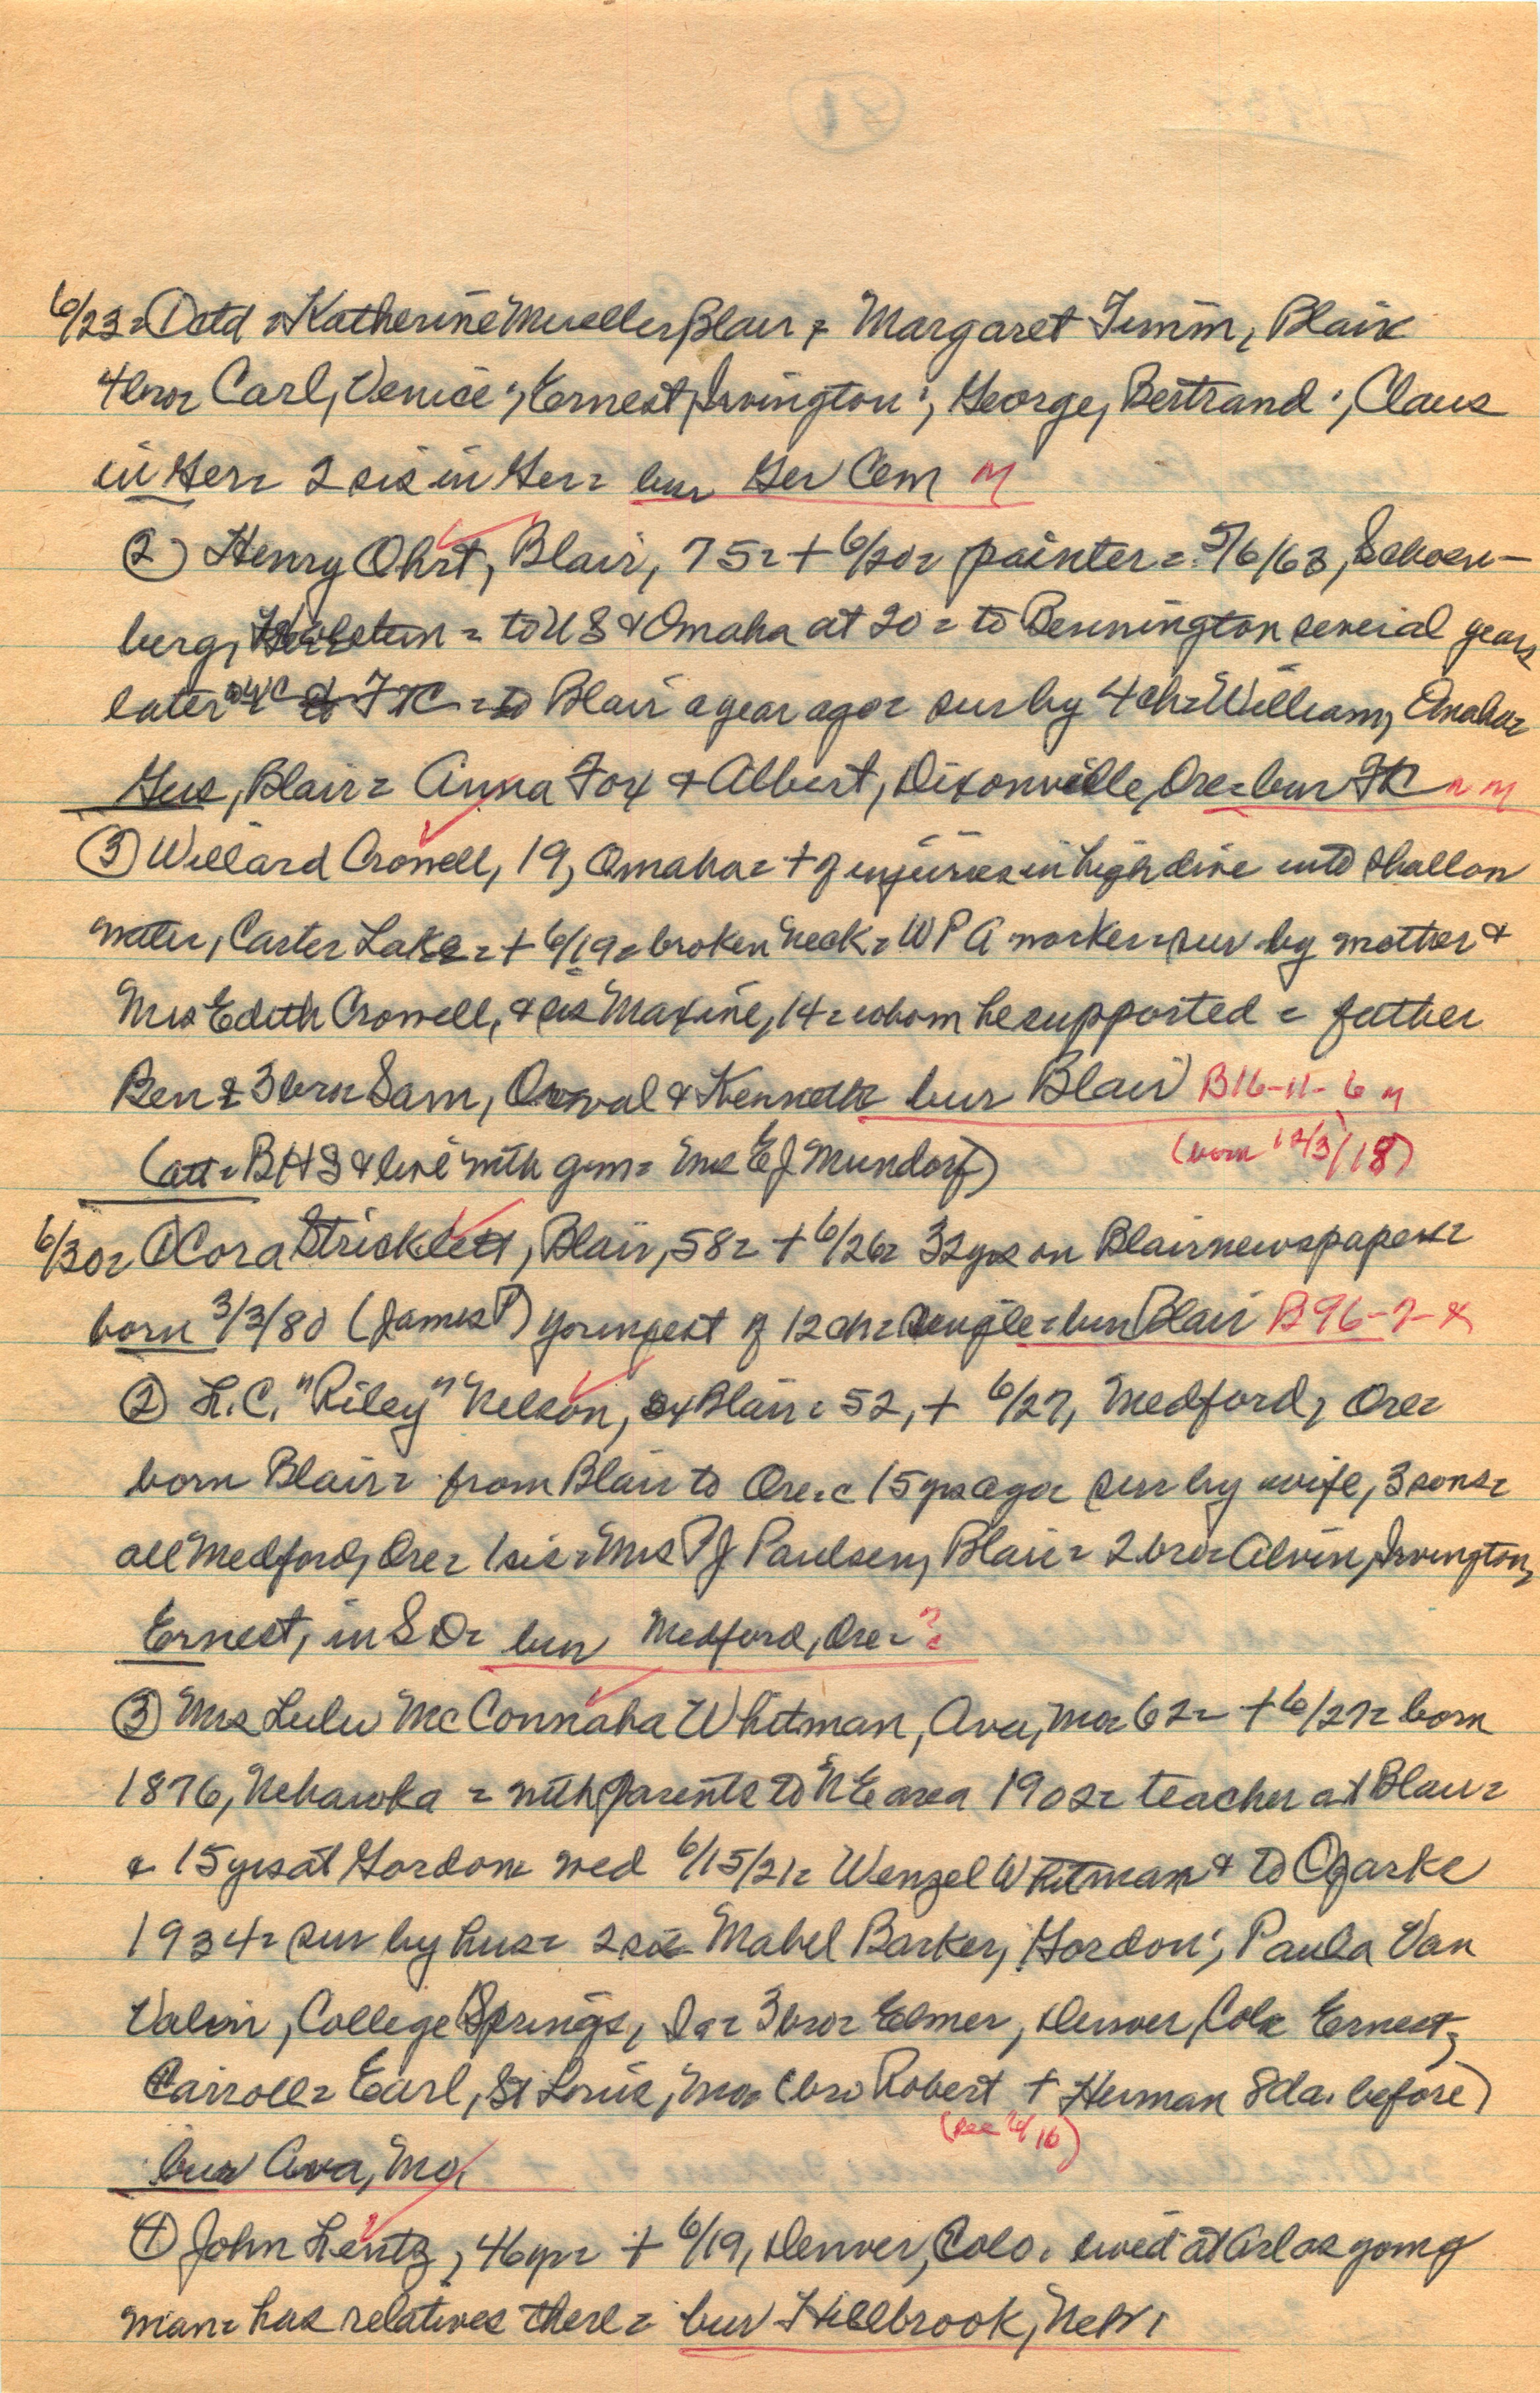 6/23 = ① ctd = Katherine Mueller, Blair, & Margaret Timm, Blair
4 bro = Carl, Venice; Ernest, Irvington; George, Bertrand; Claus
in Ger = 2 sis in Ger = bur Ger Cem M
② Henry Ohrt, Blair, 75 = + 6/20 = painter = 5/6/63, Schoen-
berg, Holstein = to US & Omaha at 20 = to Bennington several years
later = to FTC = to Blair a year ago = sur by 4 ch = William, Omaha =
Gus, Blair = Anna Fox & Albert, Dixonville, Ore = bur FTC M
③ Willard Crowell, 19, Omaha = + of injuries in high dive into shallow
water, Carter Lake = + 6/19 = broken neck = WPA worker = sur by mother &
Mrs Edith Crowell, & sis Maxine, 14 = whom he supported = father
Ben & 3 bro = Sam, Orval & Kenneth bur Blair B16-11-6 M
(att = BHS & live with gm = Mrs EJ Mundorf) (born 12/3/18)
6/30 = ① Cora Stricklett, Blair, 58 = + 6/26 = 32 yrs on Blair newspapers =
born 3/3/80 (James P) youngest of 12 ch = single = bur Blair B96-7-
② L.C. "Riley" Nelson, ex Blair = 52, + 6/27, Medford, Ore =
born Blair = from Blair to Ore = c 15 yrs ago = sur by wife, 3 sons =
all Medford, Ore = 1 sis = Mrs PJ Paulsen, Blair = 2 bro = Alvin, Irvington,
Ernest, in SD = bur Medford, Ore = ?
③ Mrs Lulu McConnaha Whitman, Ava, Mo = 62 = + 6/27 = born
1876, Nehawka = with parents to NE area 1902 = teacher at Blair =
& 15 yrs at Gordon = wed 6/15/21 = Wenzel Whitman & to Ozarks
1934 = sur by hus = 2 sis = Mabel Barker, Gordon; Paula Van
Valin, College Springs, Ia = 3 bro = Elmer, Denver, Colo = Ernest,
Carroll = Earl, St Louis, Mo = (bro Robert + Herman 8 da. before)
(see 6/16)
bur Ava, Mo.
④ John Lentz, 46 yr = + 6/19, Denver, Colo. lived at Arl as young
man = has relatives there = bur Hillbrook, Nebr.